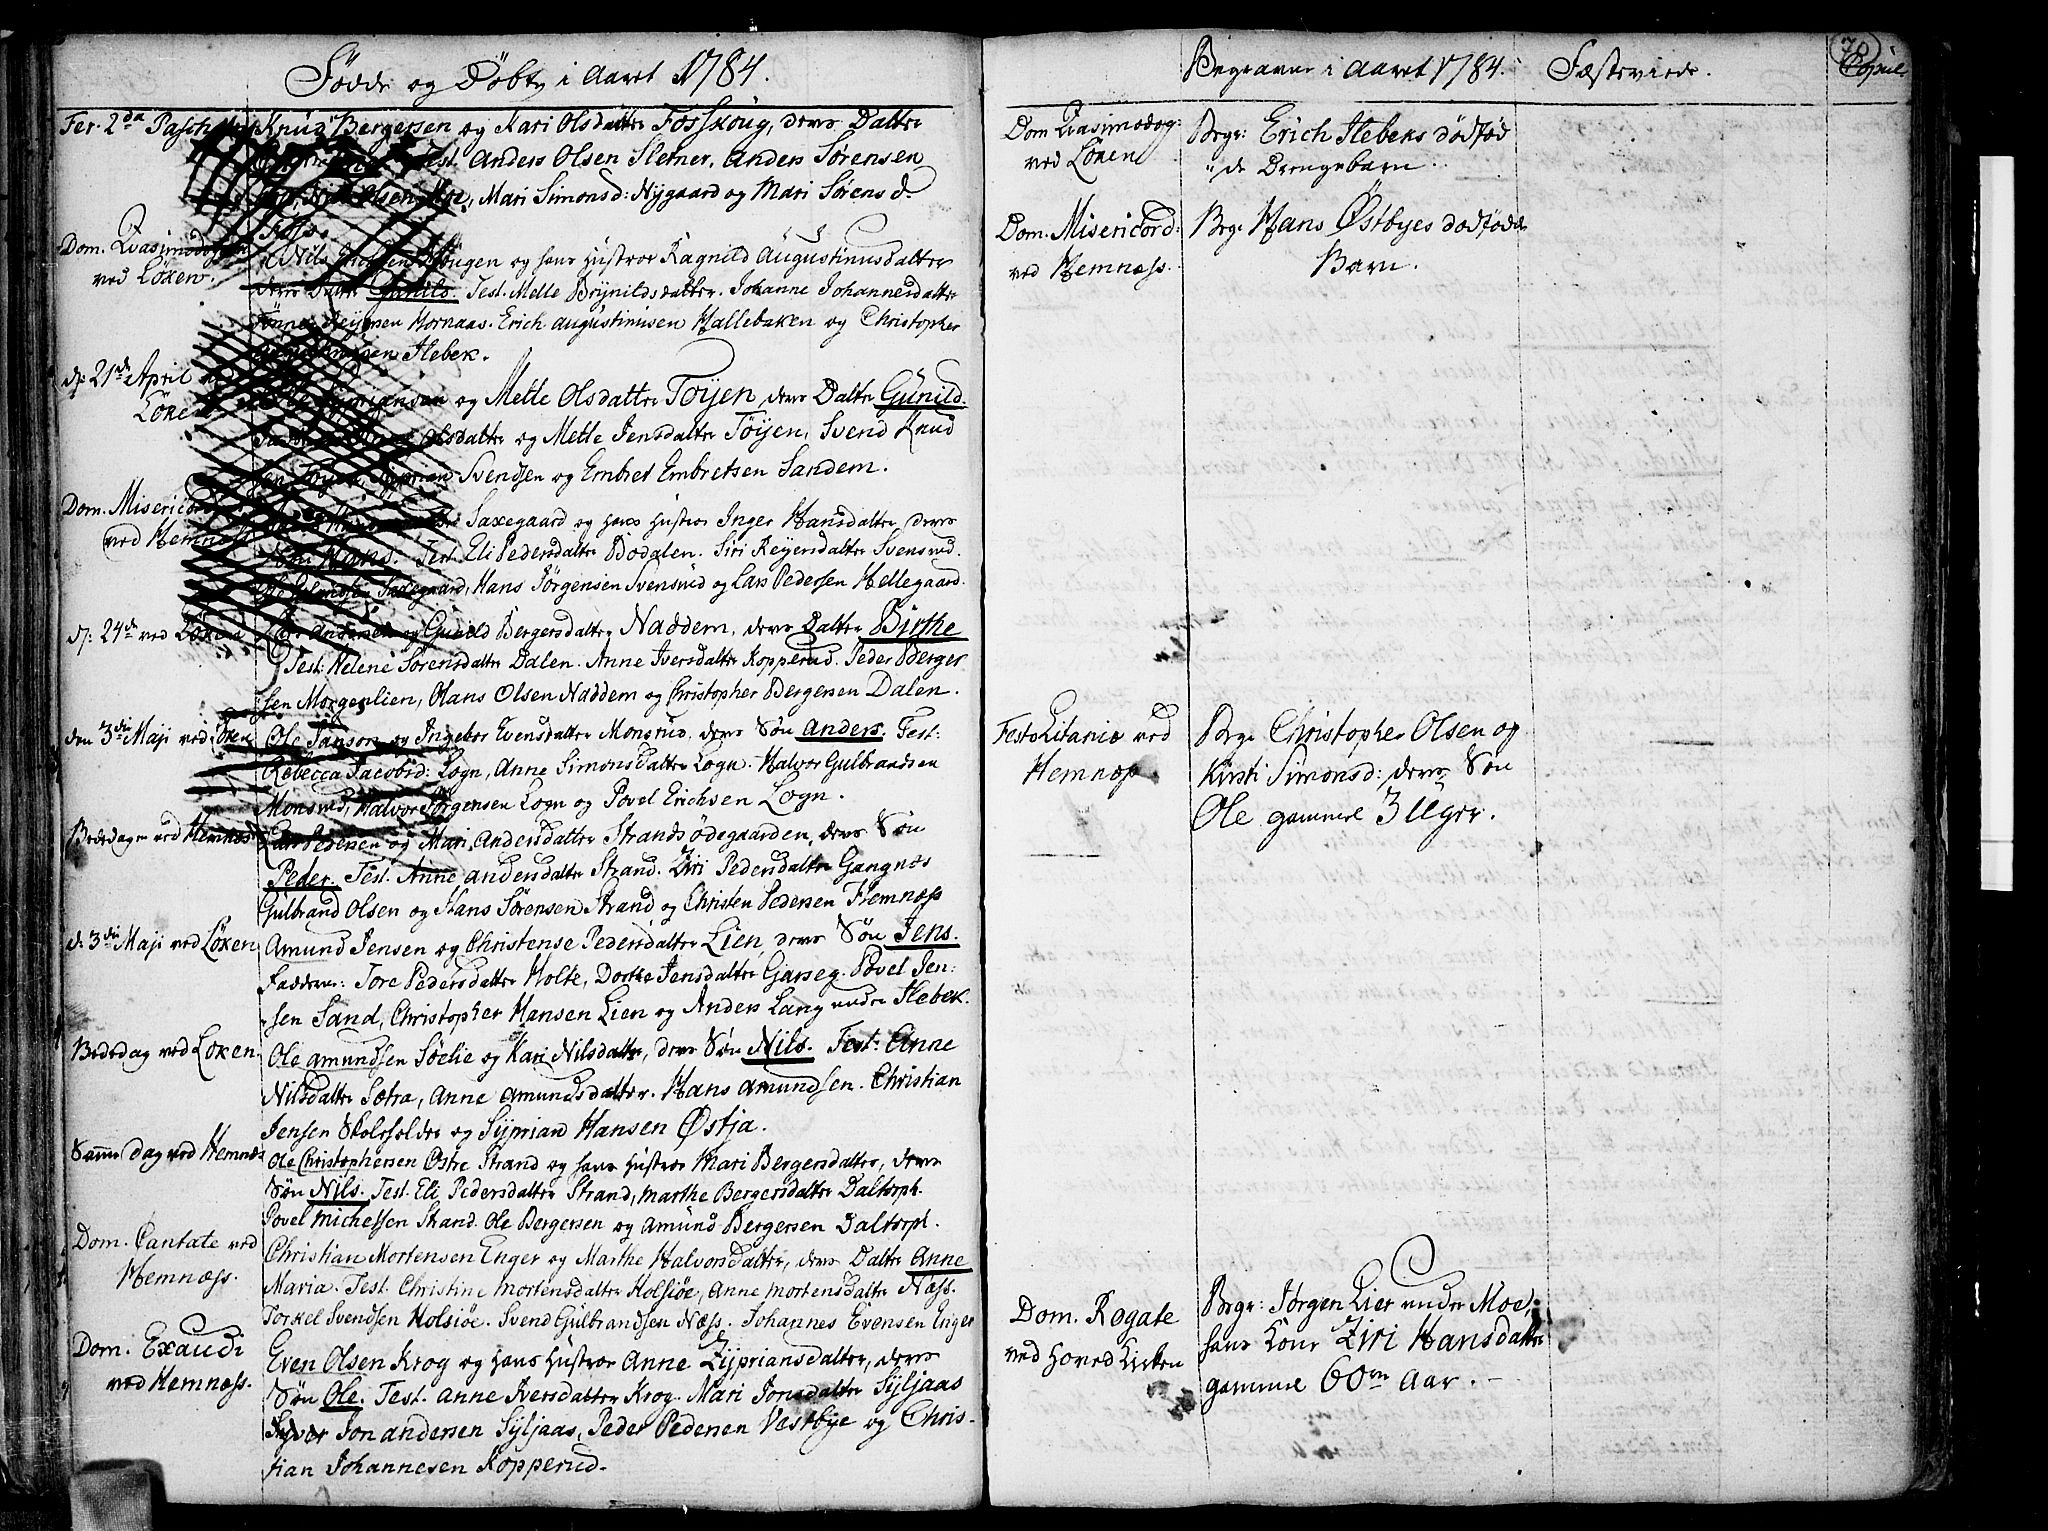 Födde og Döbte i Aaret 1784.
Fer. 2da Pasch
Knud Bergersen og Kari Olsdatter Forskoug, deres Datter
Test. Anders Olsen Slemer, Anders Sörensen
Olsen Moe, Mari Simonsd: Nygaard og Mari Sörens d.
Dom. Qvasimodogen
ved Löken.
Nils og hans Hustroe Ragnild Augustinusdatter
deres Datter Gunild. Test. Mette Brynildsdatter. Johanne Johannesdatter
Reyersen Hornaas. Erich Augustinusen Hallebaken og Christopher
Ilebek.
d: 21de April
Löken
og Mette Olsdatter Töyen, deres Datter Gunild.
Olsdatter og Mette Jensdatter Töyen, Svend Knud
Siprian Svendsen og Embret Embretsen Sandem.
Dom. Misericord
ved Hemness
Saxegaard og hans Hustroe Inger Hansdatter, deres
Sön Hans. Test. Eli Pedersdatter Bodalen. Siri Reyersdatter Svensrud.
Saxegaard, Hans Jörgensen Svensrud og Lars Pedersen Hellegaard.
d: 24de ved Löken
Lars Andersen og Gunild Bergersdatter Naddem, deres Datter Birthe
Test: Helene Sörensdatter Dalen. Anne Iversdatter Kopperud. Peder Berger
sen Morgenlien, Hans Olsen Naddem og Christopher Bergersen Dalen.
den 3die Maji ved Löken
Ole Janson og Ingebor Evensdatter Monsrud, deres Sön Anders. Test:
Rebecca Jacobsd: Logn, Anne Simonsdatter Logn. Halvor Gulbrandsen
Monsrud, Halvor Jörgensen Logn og Povel Erichsen Logn.
Bededagen ved Hemness
Lars Pedersen og Mari Andersdatter Strandsödegaarden, deres Sön
Peder. Test. Anne Andersdatter Strand. Ziri Pedersdatter Gangnes
Gulbrand Olsen og Hans Sörensen Strand og Christen Pedersen Hemness
d: 3die Maji ved Löken
Amund Jensen og Christense Pedersdatter Lien, deres Sön Jens.
Fadderne: Tore Pedersdatter Holte, Dorthe Jensdatter Gjarseg. Povel Jen:
sen Sand, Christopher Hansen Lien og Anders Lang under Ilebek.
Bededag ved Löken
Ole Amundsen Söelie og Kari Nilsdatter, deres Sön Nils. Test: Anne
Nilsdatter Sætra, Anne Amundsdatter. Hans Amundsen. Christian
Jensen Skoleholder og Syprian Hansen Östja.
Samme Dag ved Hemnes
Ole Christophersen Ostre Strand og hans Hustroe Mari Bergersdatter, deres
Sön Nils. Test. Eli Pedersdatter Strand, Marthe Bergersdatter Daltorph.
Povel Michelsen Strand. Ole Bergersen og Amund Bergersen Daltorph.
Dom. Cantate ved
Hemness.
Christian Mortensen Enger og Marthe Halvorsdatter, deres Datter Anne
Maria. Test. Christine Mortensdatter Holsiöe, Anne Mortensdatter Næss.
Torkel Svendsen Holsiöe. Svend Gulbrandsen Næss. Johannes Evensen Enger
Dom. Exaudi
ved Hemness.
Even Olsen Krog og hans Hustroe Anne Zypriansdatter, deres
Sön Ole. Test. Anne Iversdatter Krog. Mari Jonsdatter Syljaas
Jon Andersen Syljaas, Peder Pedersen Vestbye og Chris-
tian Johannesen Kopperud.
Begravne i Aaret 1784.
Fæstevierde.
70
Copul.
Dom Qvasimodog:
ved Löken
Begr: Erich Ilebeks dödföd
de Drengebarn.
Dom. Misericord:
ved Hemness.
Begr Hans Östbyes dodföde
Barn.
Festo Litaniæ ved
Hemness
Begr Christopher Olsen og
Kirsti Simonsd: deres Sön
Ole gammel 3 Uger.
Dom. Rogate
ved Hoved Kirken
Begr: Jörgen Lier under Moe,
hans Kone Ziri Hansdatter
gammel 60 Aar.